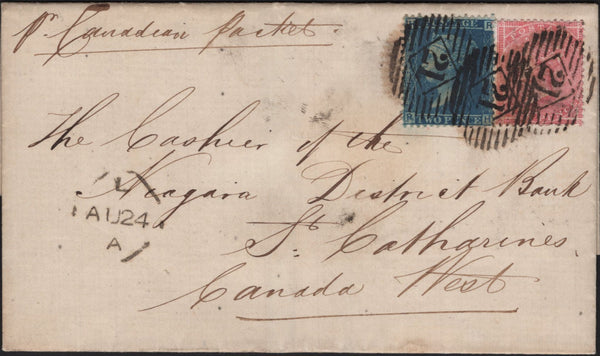 pr Canadian Packet
TWO PENCE
21
21
21
The Cashier of the
Niagara District Bank
AU24
A
St. Catharines
Canada West